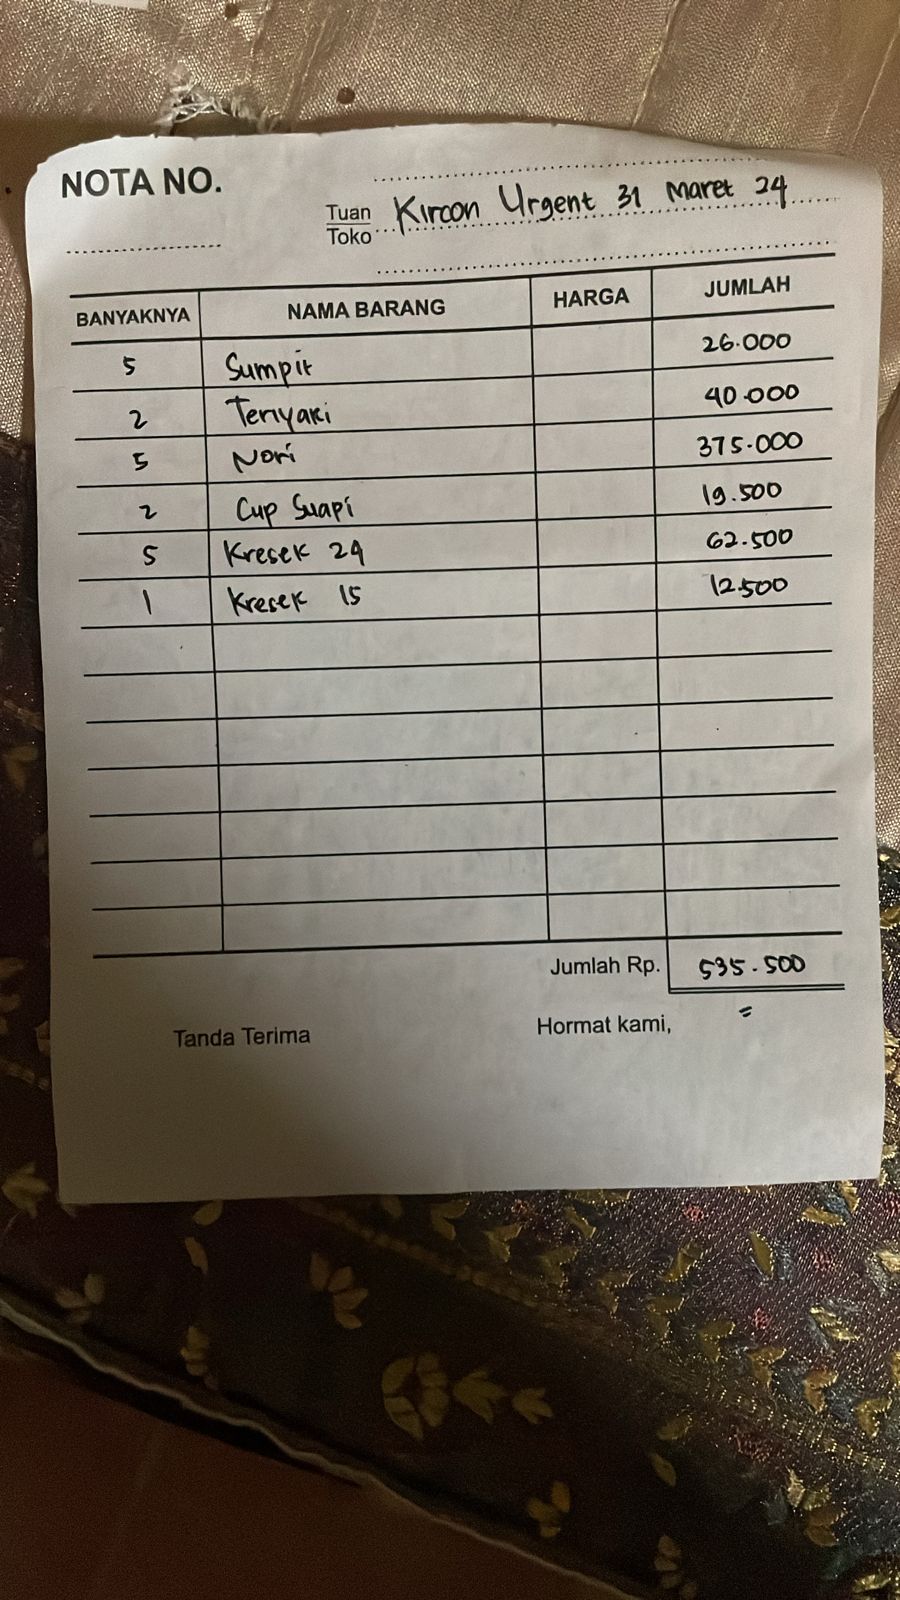 NOTA NO.
Tuan
Toko
Kircon Urgent 31 Maret 24
BANYAKNYA NAMA BARANG HARGA JUMLAH
5 Sumpit 26.000
2 Teriyaki 40.000
5 Nori 375.000
2 Cup Suapi 19.500
5 Kresek 24 62.500
1 Kresek 15 12.500
Jumlah Rp. 535.500
Tanda Terima Hormat kami,